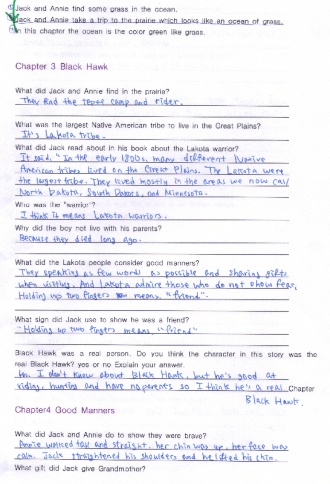 Jack and Annie find some grass in the ocean.
Jack and Annie take a trip to the prairie which looks like an ocean of grass.
In this chapter the ocean is the color green like grass.
Chapter 3 Black Hawk
What did Jack and Annie find in the prairie?
They find the tepee camp and rider.
What was the largest Native American tribe to live in the Great Plains?
It's Lakota tribe.
What did Jack read about in his book about the Lakota warrior?
It said, "In the early 1800s, many different Native
American tribes lived on the Great Plains. The Lakota were
the largest tribe. They lived mostly in the areas we now call
North Dakota, South Dakota, and Minnesota.
Who was the "warrior"?
I think it means Lakota warriors.
Why did the boy not live with his parents?
Because they died long ago.
What did the Lakota people consider good manners?
They speaking as few words as possible and sharing gifts
when visiting. And Lakota admire those who do not show fear,
Holding up two fingers means "friend".
What sign did Jack use to show he was a friend?
Holding up two fingers means "friend"
Black Hawk was a real person. Do you think the character in this story was the
real Black Hawk? yes or no Explain your answer.
I don't know about Black Hawk, but he's good at
riding, hunting and have no parents so I think he's a real Chapter
Black Hawk.
Chapter4 Good Manners
What did Jack and Annie do to show they were brave?
Annie walked tall and straight, her chin was up, her face was
calm. Jack straightened his shoulders and he lifted his chin.
What gift did Jack give Grandmother?